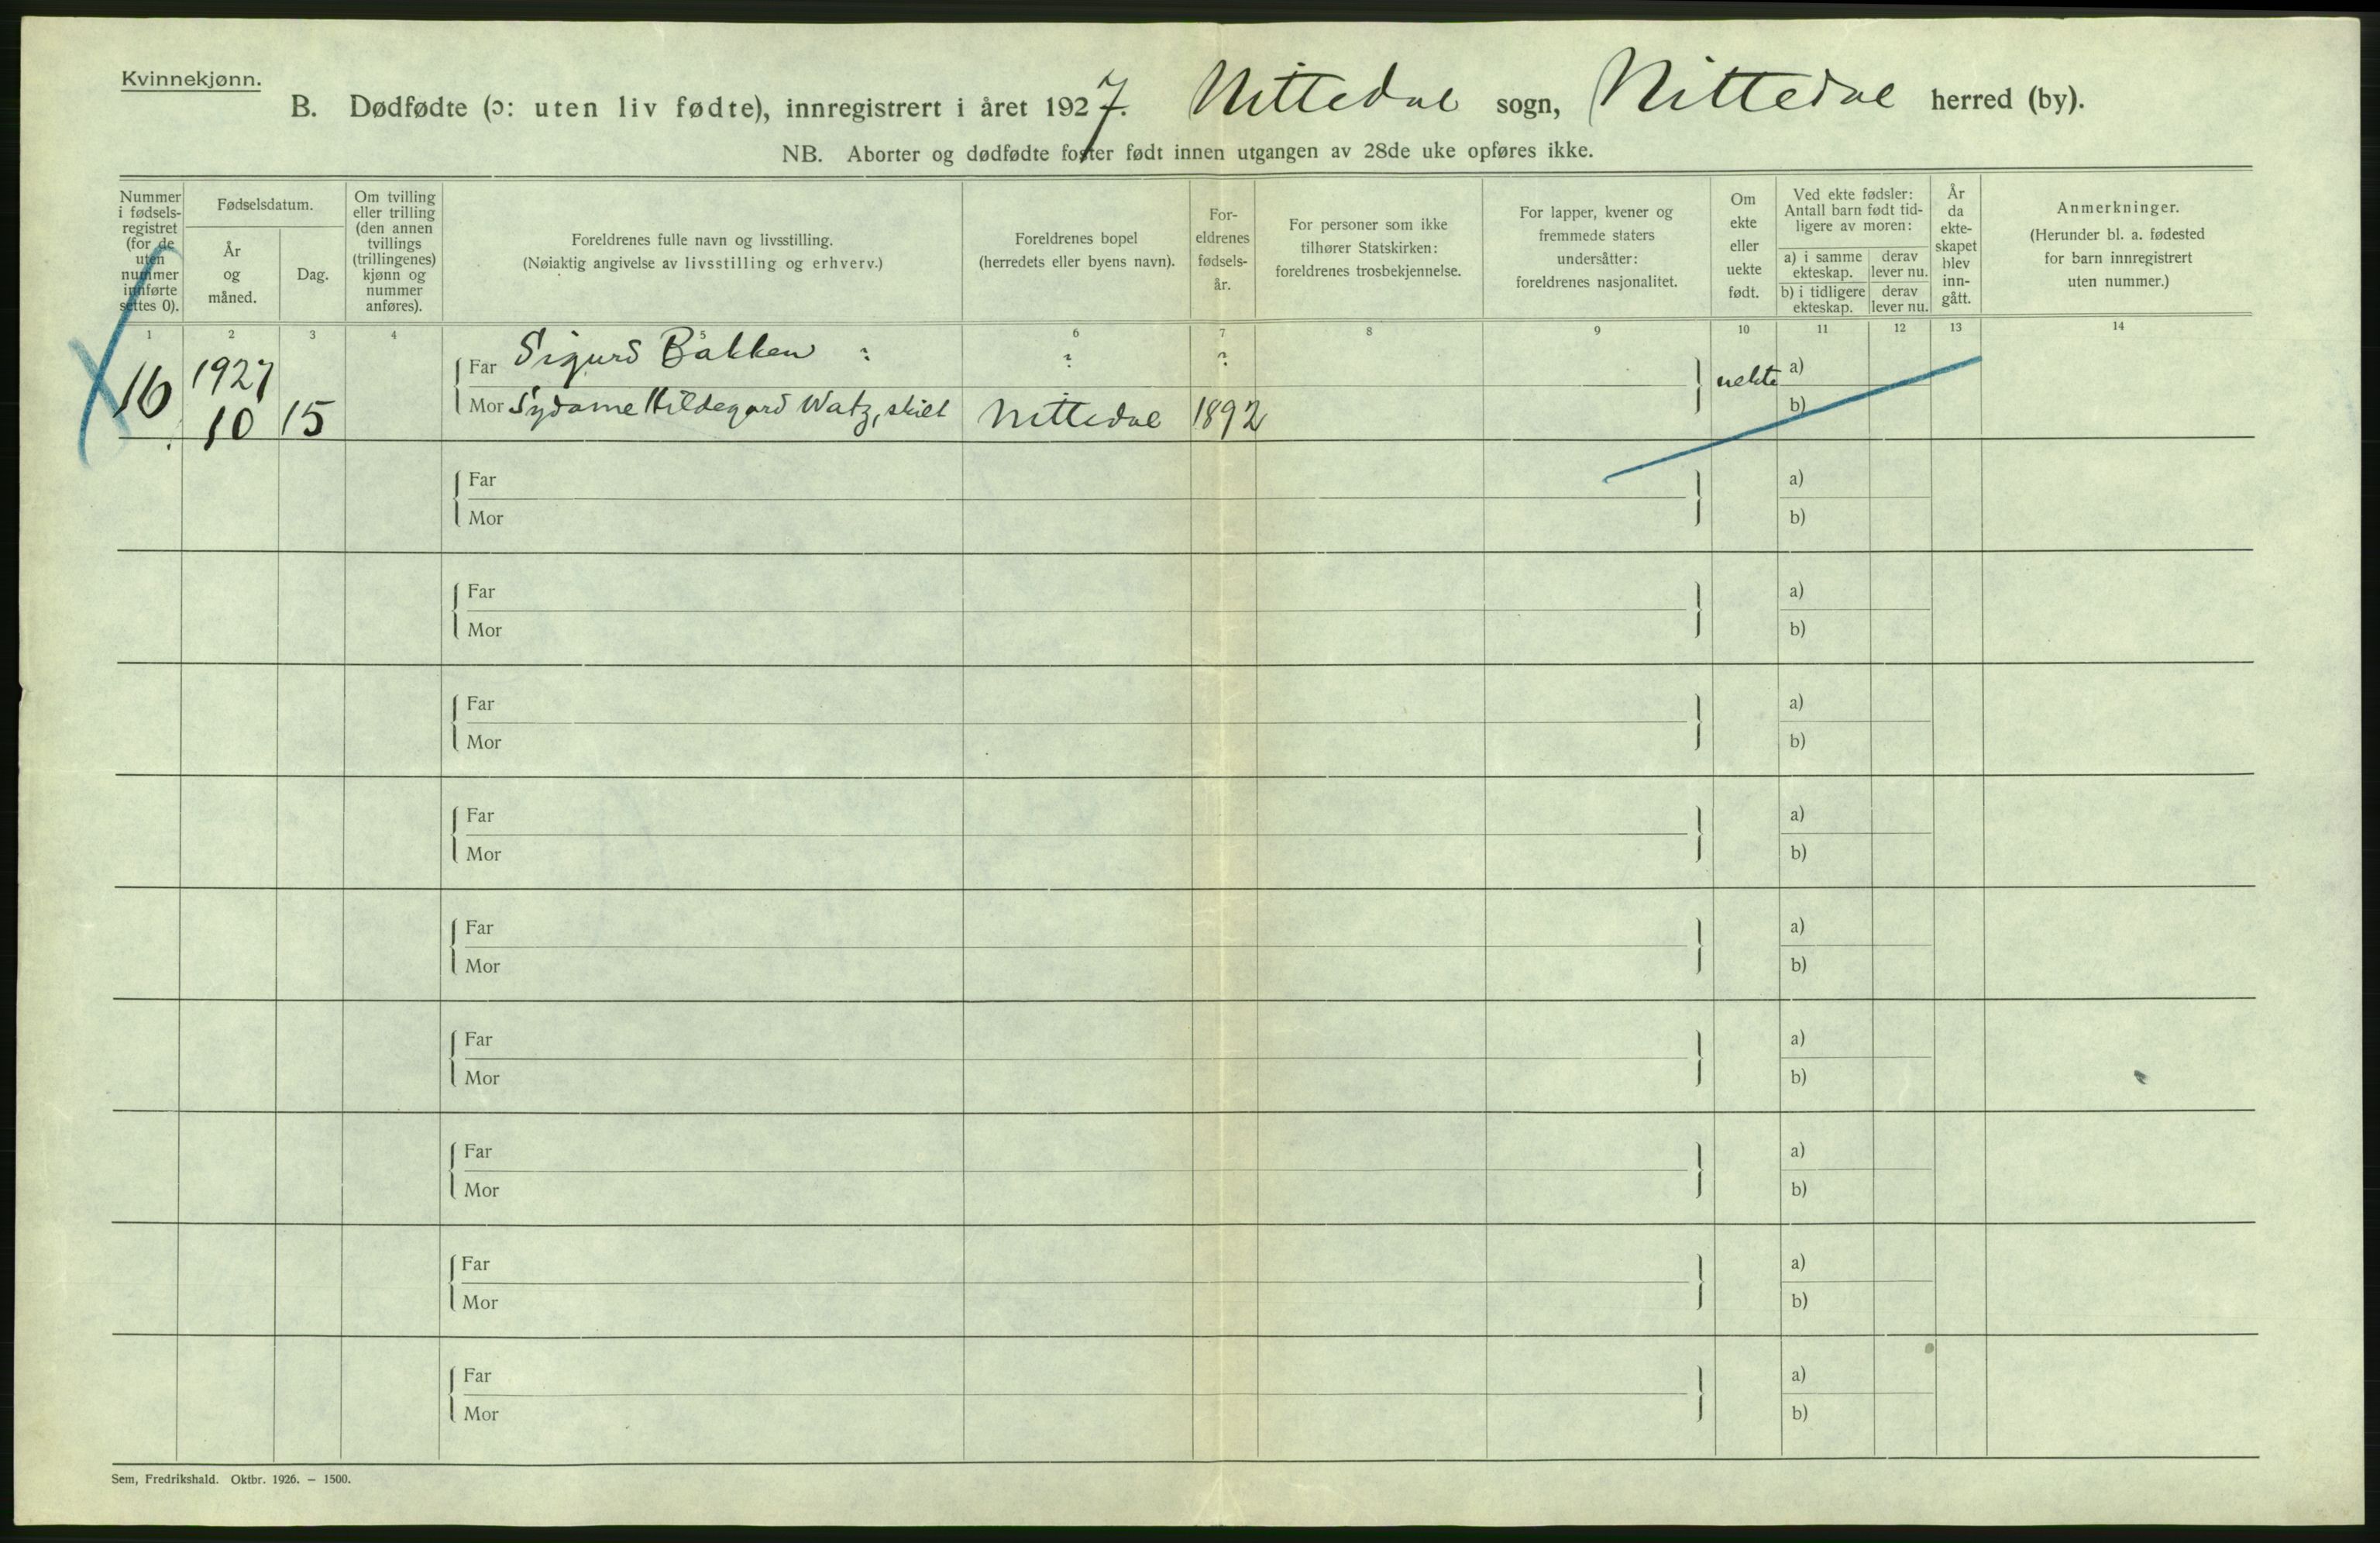 Kvinnekjønn.
B. Dødfødte (ɔ: uten liv fødte), innregistrert i året 1927. Nittedal sogn, Nittedal herred (by).
NB. Aborter og dødfødte foster født innen utgangen av 28de uke opføres ikke.
Nummer
i fødsels-
registret
(for de
uten
nummer
innførte
settes 0).
Fødselsdatum.
År
og
måned.
Dag.
Om tvilling
eller trilling
(den annen
tvillings
(trillingenes)
kjønn og
nummer
anføres).
Foreldrenes fulle navn og livsstilling.
(Nøiaktig angivelse av livsstilling og erhverv.)
Foreldrenes bopel
(herredets eller byens navn).
For-
eldrenes
fødsels-
år.
For personer som ikke
tilhører Statskirken:
foreldrenes trosbekjennelse.
For lapper, kvener og
fremmede staters
undersåtter:
foreldrenes nasjonalitet.
Om
ekte
eller
uekte
født.
Ved ekte fødsler:
Antall barn født tid-
ligere av moren:
a) i samme
ekteskap.
derav
lever nu.
b) i tidligere
ekteskap.
derav
lever nu.
År
da
ekte-
skapet
blev
inn-
gått.
Anmerkninger.
(Herunder bl. a. fødested
for barn innregistrert
uten nummer.)
1 2 3 4 5 6 7 8 9 10 11 12 13 14
16 1927
10 15
Far Sigurd Bakken ? ? ? uekte a)
Mor Sydame Hildegard Watz, skilt Nittedal 1892 b)
Far a)
Mor b)
Far a)
Mor b)
Far a)
Mor b)
Far a)
Mor b)
Far a)
Mor b)
Far a)
Mor b)
Far a)
Mor b)
Far a)
Mor b)
Far a)
Mor b)
Sem, Fredrikshald. Oktbr. 1926. – 1500.